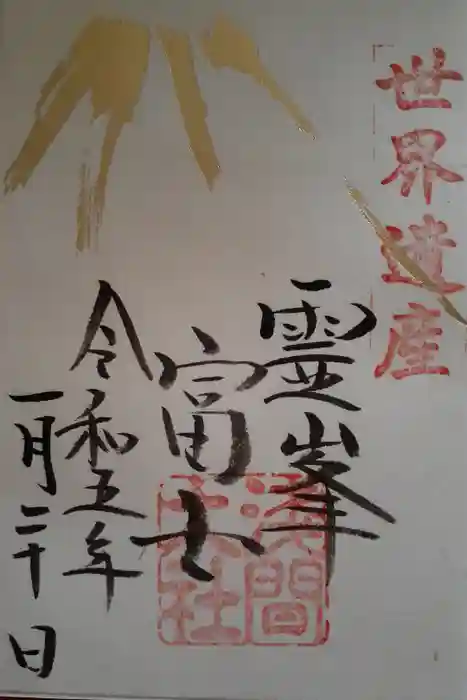 世界遺産
霊峯
富士
淺間
大社
令和五年
一月二十日